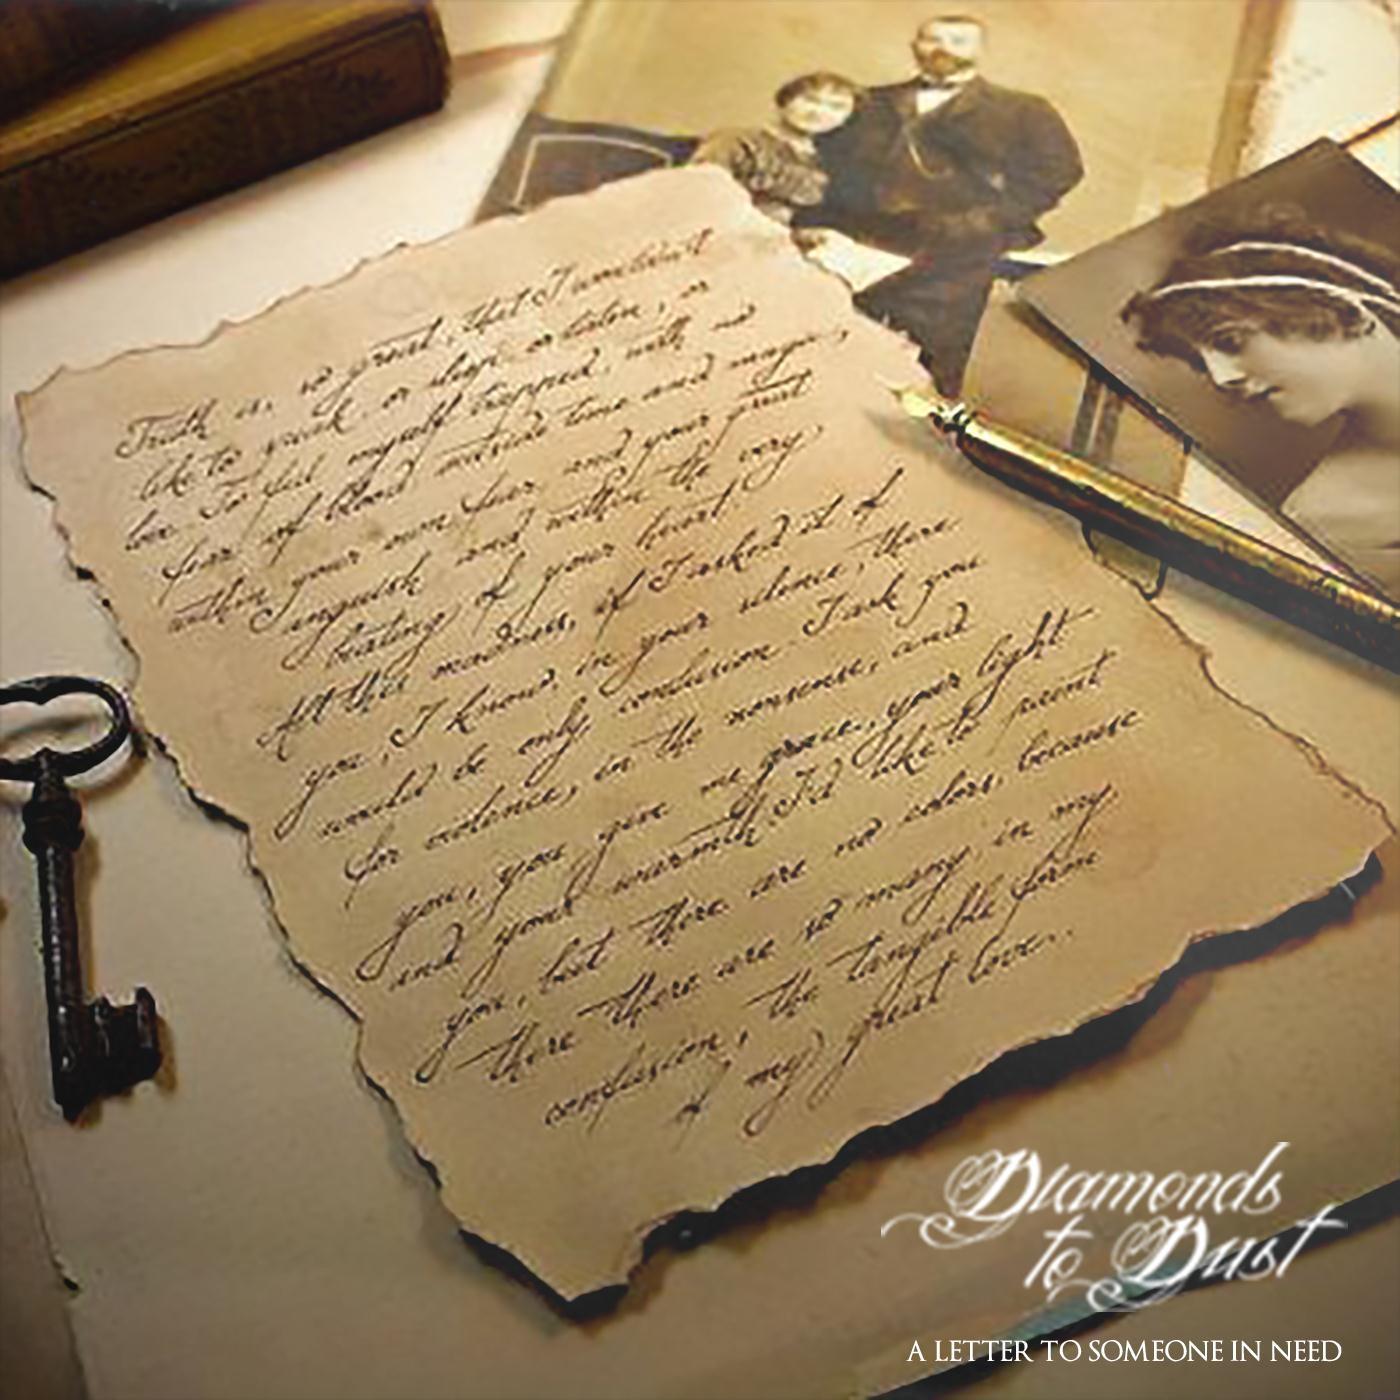 Truth is, so great, that I wouldn't
like to speak, or sleep, or listen, or
love. To feel myself trapped, with no
fear of blood, outside time and magic,
within your own fear, and your great
anguish, and within the very
beating of your heart.
All this madness, if I asked it of
you, I know, in your silence, there
would be only confusion. I ask you
for violence, in the nonsense, and
you, you give me grace, your light
and your warmth. I'd like to paint
you, but there are no colors, because
there are so many, in my
confusion, the tangible form
of my great love...
Diamonds
to Dust
A LETTER TO SOMEONE IN NEED